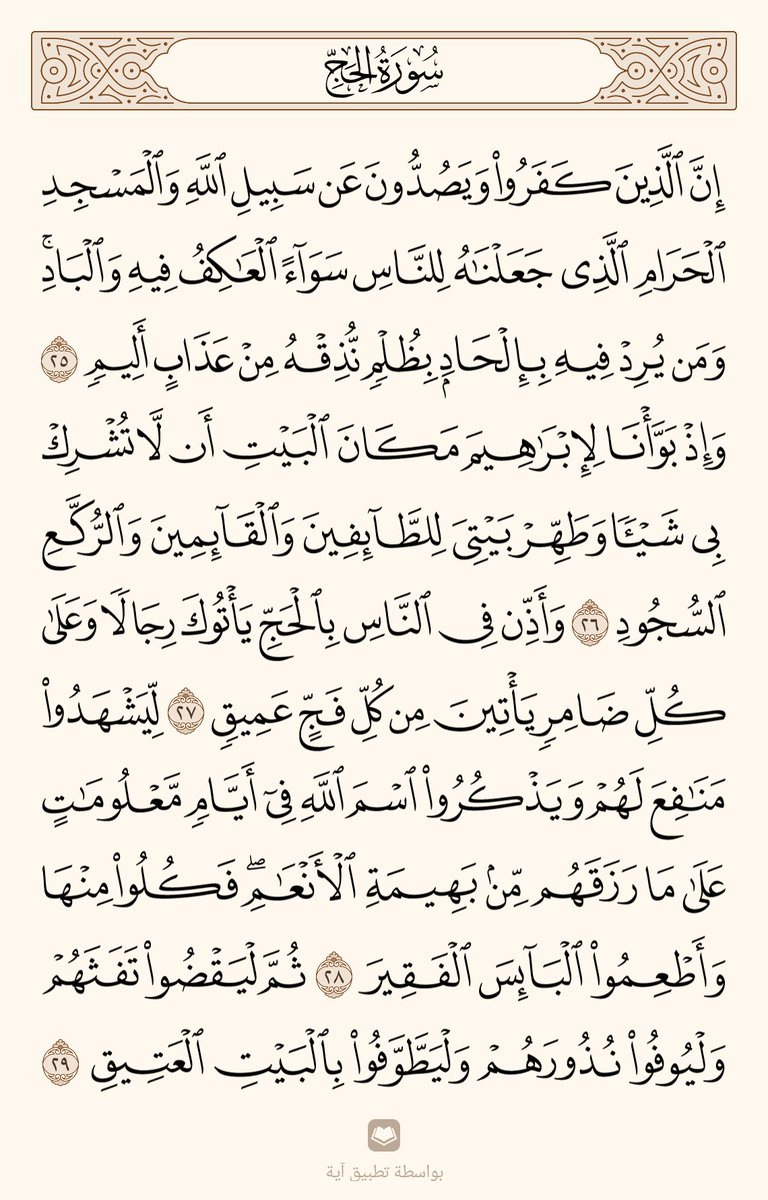 سُورَةُ الحَجِّ
إِنَّ ٱلَّذِينَ كَفَرُوا۟ وَيَصُدُّونَ عَن سَبِيلِ ٱللَّهِ وَٱلْمَسْجِدِ
ٱلْحَرَامِ ٱلَّذِى جَعَلْنَـٰهُ لِلنَّاسِ سَوَآءً ٱلْعَـٰكِفُ فِيهِ وَٱلْبَادِ ۚ
وَمَن يُرِدْ فِيهِ بِإِلْحَادٍۭ بِظُلْمٍ نُّذِقْهُ مِنْ عَذَابٍ أَلِيمٍ ٢٥
وَإِذْ بَوَّأْنَا لِإِبْرَٰهِيمَ مَكَانَ ٱلْبَيْتِ أَن لَّا تُشْرِكْ
بِى شَيْـًٔا وَطَهِّرْ بَيْتِىَ لِلطَّآئِفِينَ وَٱلْقَآئِمِينَ وَٱلرُّكَّعِ
ٱلسُّجُودِ ٢٦ وَأَذِّن فِى ٱلنَّاسِ بِٱلْحَجِّ يَأْتُوكَ رِجَالًا وَعَلَىٰ
كُلِّ ضَامِرٍ يَأْتِينَ مِن كُلِّ فَجٍّ عَمِيقٍ ٢٧ لِّيَشْهَدُوا۟
مَنَـٰفِعَ لَهُمْ وَيَذْكُرُوا۟ ٱسْمَ ٱللَّهِ فِىٓ أَيَّامٍ مَّعْلُومَـٰتٍ
عَلَىٰ مَا رَزَقَهُم مِّنۢ بَهِيمَةِ ٱلْأَنْعَـٰمِ ۖ فَكُلُوا۟ مِنْهَا
وَأَطْعِمُوا۟ ٱلْبَآئِسَ ٱلْفَقِيرَ ٢٨ ثُمَّ لْيَقْضُوا۟ تَفَثَهُمْ
وَلْيُوفُوا۟ نُذُورَهُمْ وَلْيَطَّوَّفُوا۟ بِٱلْبَيْتِ ٱلْعَتِيقِ ٢٩
بواسطة تطبيق آية